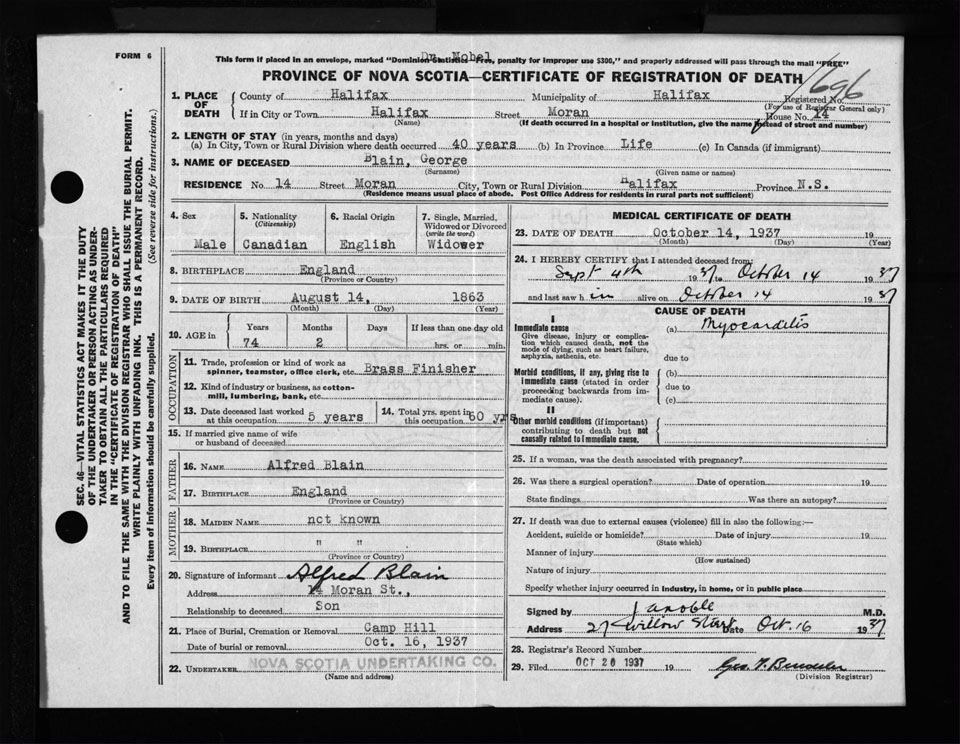 FORM 6
Dr. Nobel
This form if placed in an envelope, marked "Dominion Statistics—Free, penalty for improper use $300," and properly addressed will pass through the mail "FREE"
PROVINCE OF NOVA SCOTIA—CERTIFICATE OF REGISTRATION OF DEATH
1696
1. PLACE OF DEATH
County of Halifax Municipality of Halifax Registered No.
(For use of Registrar General only)
If in City or Town Halifax Street Moran House No. 14
(Name) (If death occurred in a hospital or institution, give the name instead of street and number)
2. LENGTH OF STAY (in years, months and days)
(a) In City, Town or Rural Division where death occurred 40 years (b) In Province Life (c) In Canada (if immigrant)
3. NAME OF DECEASED Blain, George
(Surname) (Given name or names)
RESIDENCE No. 14 Street Moran City, Town or Rural Division Halifax Province N.S.
(Residence means usual place of abode. Post Office Address for residents in rural parts not sufficient)
4. Sex 5. Nationality (Citizenship) 6. Racial Origin 7. Single, Married, Widowed or Divorced (write the word)
Male Canadian English Widower
8. BIRTHPLACE England
(Province or Country)
9. DATE OF BIRTH August 14, 1863
(Month) (Day) (Year)
10. AGE in Years Months Days If less than one day old
74 2 hrs. or min.
OCCUPATION
11. Trade, profession or kind of work as spinner, teamster, office clerk, etc. Brass Finisher
12. Kind of industry or business, as cotton-mill, lumbering, bank, etc.
13. Date deceased last worked at this occupation 5 years
14. Total yrs. spent in this occupation 60 yrs
15. If married give name of wife or husband of deceased
FATHER
16. NAME Alfred Blain
17. BIRTHPLACE England
(Province or Country)
MOTHER
18. MAIDEN NAME not known
19. BIRTHPLACE " "
(Province or Country)
20. Signature of informant Alfred Blain
Address 14 Moran St.,
Relationship to deceased Son
21. Place of Burial, Cremation or Removal Camp Hill
Date of burial or removal Oct. 16, 1937
22. UNDERTAKER NOVA SCOTIA UNDERTAKING CO.
(Name and address)
MEDICAL CERTIFICATE OF DEATH
23. DATE OF DEATH October 14, 1937 19
(Month) (Day) (Year)
24. I HEREBY CERTIFY that I attended deceased from:
Sept 4th 1937 to October 14 1937
and last saw h im alive on October 14 1937
CAUSE OF DEATH
I
Immediate cause (a) Myocarditis
Give disease, injury or complication which caused death, not the mode of dying, such as heart failure, asphyxia, asthenia, etc.
due to
Morbid conditions, if any, giving rise to immediate cause (stated in order proceeding backwards from immediate cause).
(b)
due to
(c)
II
Other morbid conditions (if important) contributing to death but not causally related to immediate cause.
25. If a woman, was the death associated with pregnancy?
26. Was there a surgical operation? Date of operation 19
State findings Was there an autopsy?
27. If death was due to external causes (violence) fill in also the following:—
Accident, suicide or homicide? Date of injury 19
(State which)
Manner of injury
(How sustained)
Nature of injury
Specify whether injury occurred in industry, in home, or in public place
Signed by M.D.
Address 27 Willow Street Date Oct. 16 1937
28. Registrar's Record Number
29. Filed OCT 20 1937 19
(Division Registrar)
SEC. 46—VITAL STATISTICS ACT MAKES IT THE DUTY
OF THE UNDERTAKER OR PERSON ACTING AS UNDER-
TAKER TO OBTAIN ALL THE PARTICULARS REQUIRED
IN THE "CERTIFICATE OF REGISTRATION OF DEATH"
AND TO FILE THE SAME WITH THE DIVISION REGISTRAR WHO SHALL ISSUE THE BURIAL PERMIT.
WRITE PLAINLY WITH UNFADING INK. THIS IS A PERMANENT RECORD.
Every item of information should be carefully supplied. (See reverse side for instructions.)